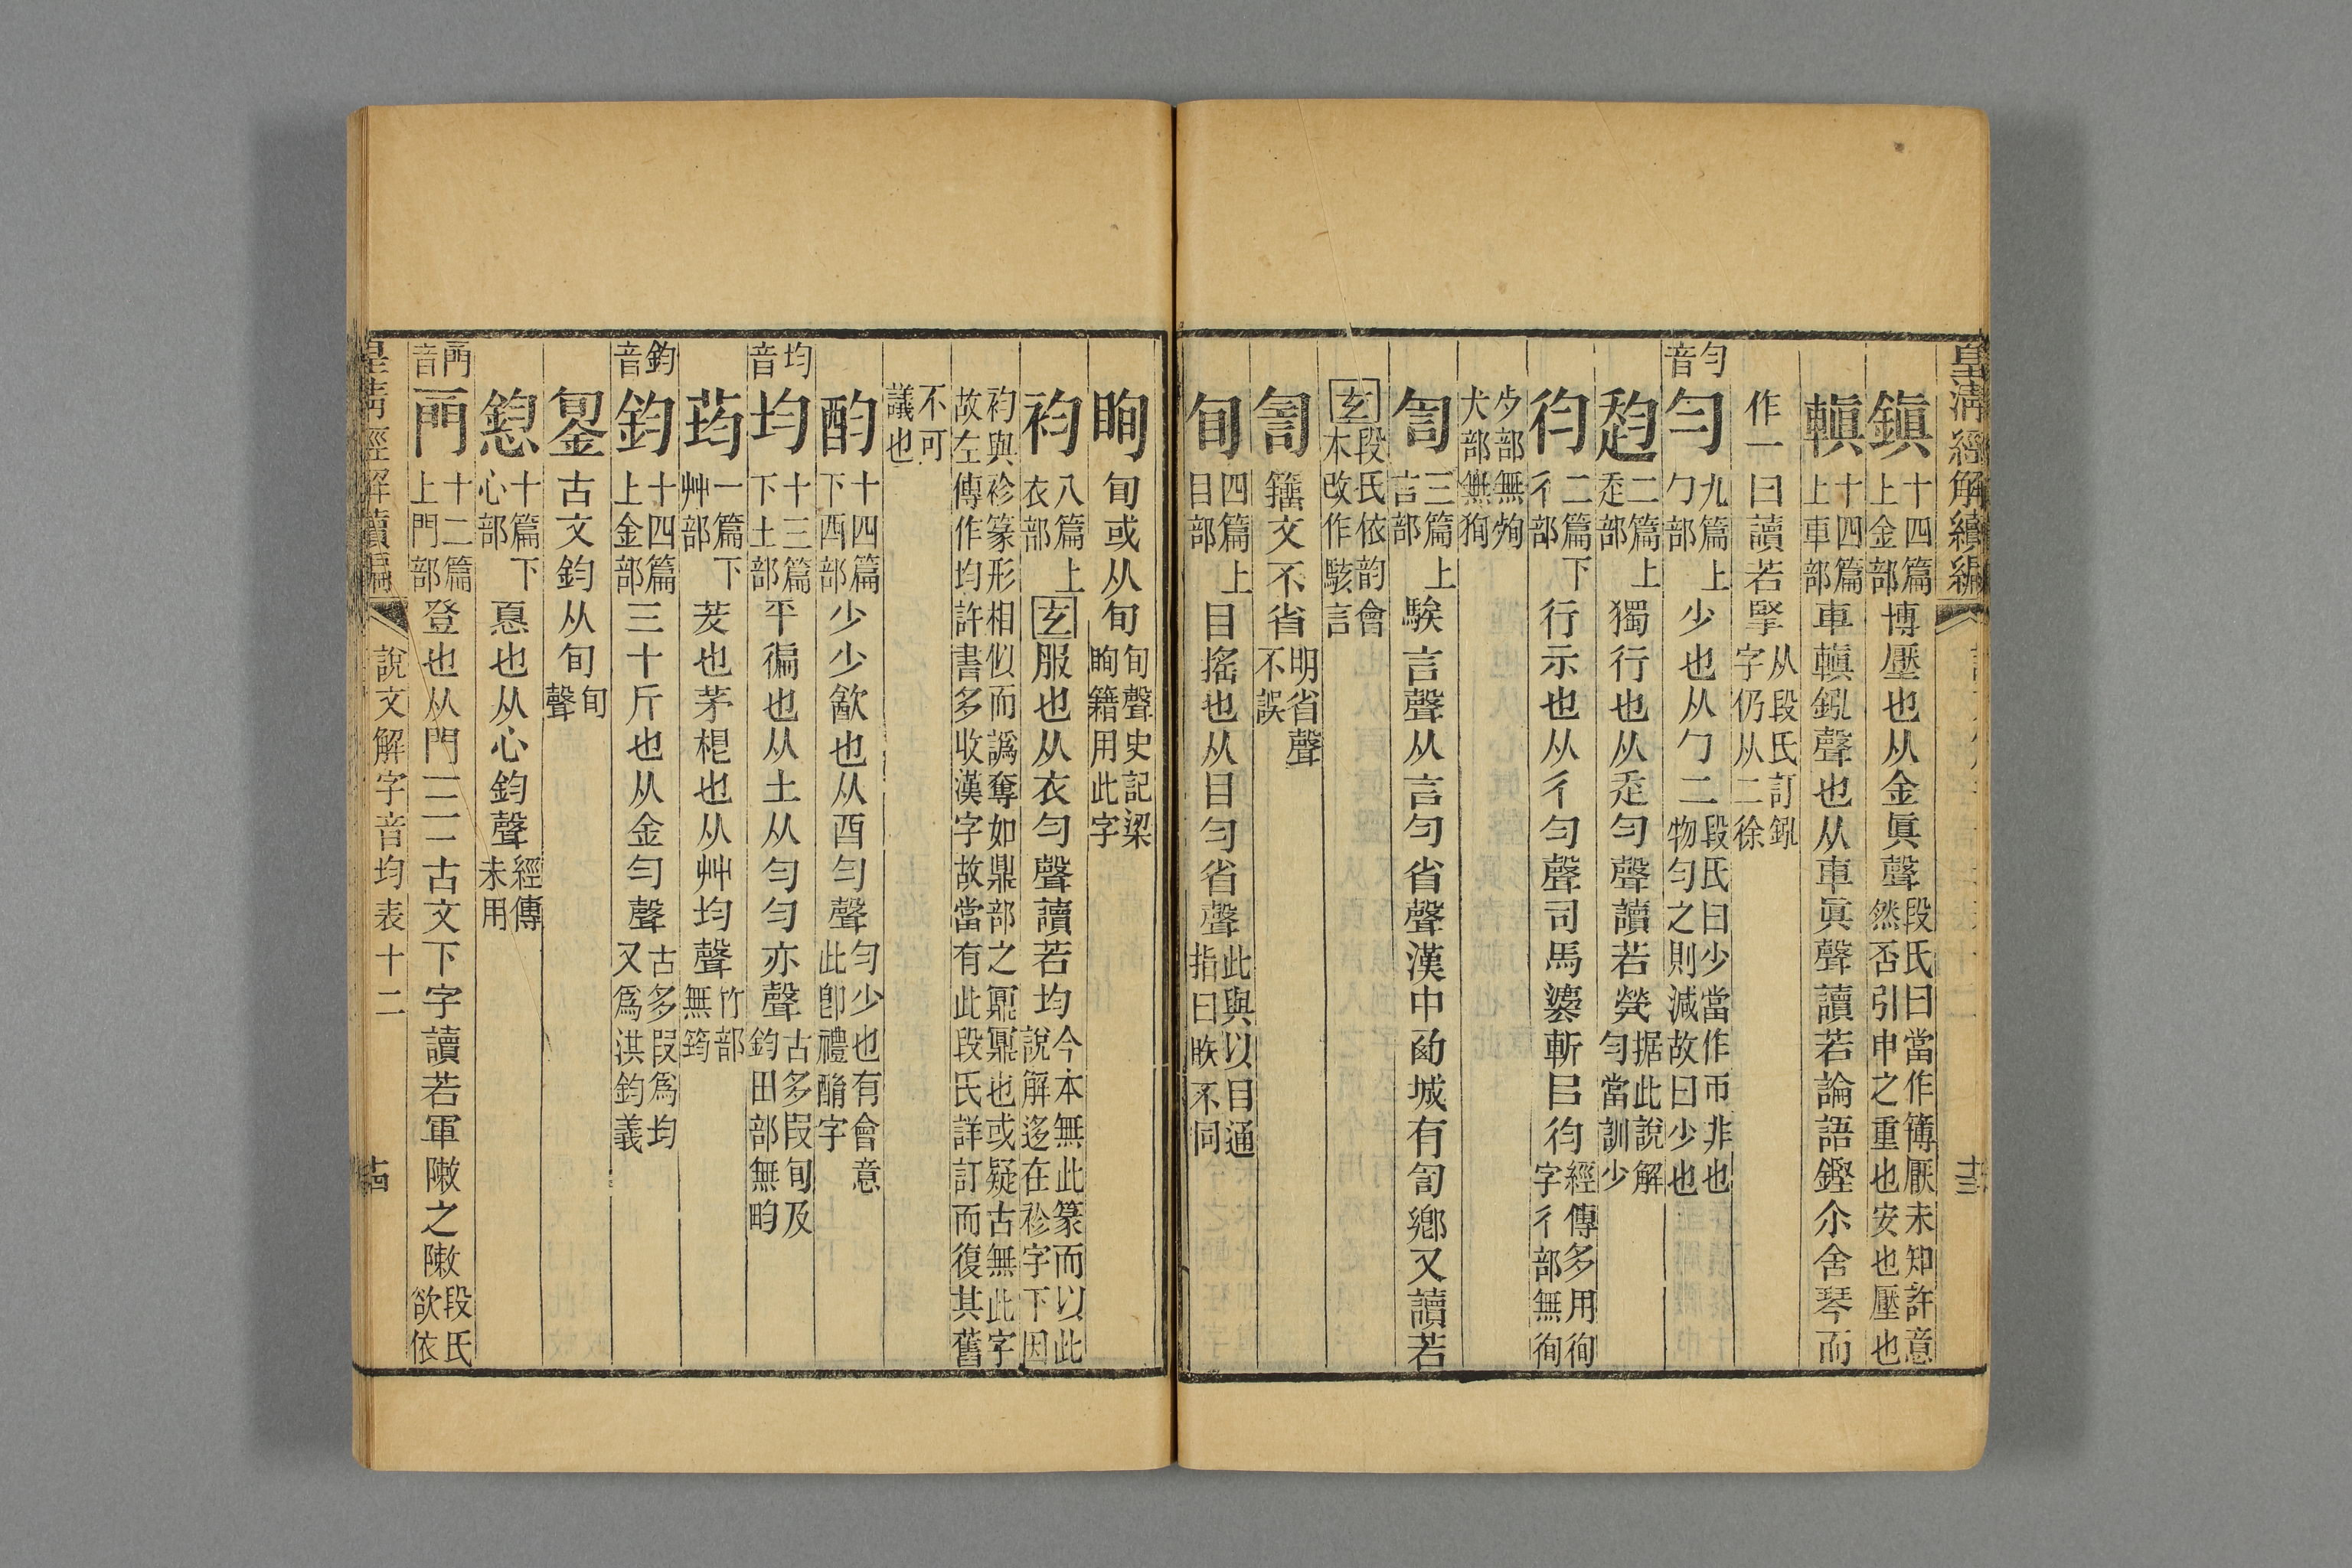 皇清經解續編
十三
鎭十四篇上金部博壓也从金眞聲段氏曰當作簙厭未知許意然否引申之重也安也壓也
轒十四篇上車部車轒鈏聲也从車眞聲讀若論語鏗尒舍琴而
作一曰讀若掔从段氏訂鈏字仍从二徐
勻音
勻九篇上勹部少也从勹二段氏曰少當作帀非也物勻之則減故曰少也
赹二篇上辵部獨行也从辵勻聲讀若煢据此說解勻當訓少
徇二篇下彳部行示也从彳勻聲司馬灋斬㠯徇經傳多用徇字彳部無徇
歺部無殉犬部無狥
訇三篇上言部騃言聲从言勻省聲漢中𠧟城有訇鄉又讀若
玄段氏依韵會本改作駭言
訇籒文不省明省聲不誤
旬四篇上目部目搖也从目勻省聲此與以目通指曰眣不同
眴旬或从旬旬聲史記梁眴籍用此字
袀八篇上衣部玄服也从衣勻聲讀若均今本無此篆而以此說解迻在袗字下因
袀與袗篆形相似而譌奪如鼎部之鼏鼏也或疑古無此字故左傳作均許書多收漢字故當有此段氏詳訂而復其舊
不可議也
酳十四篇下酉部少少㱃也从酉勻聲勻少也有會意此卽禮酳字
均音
均十三篇下土部平徧也从土从勻勻亦聲古多叚旬及鈞田部無畇
荺一篇下艸部茇也茅根也从艸均聲竹部無筠
鈞音
鈞十四篇上金部三十斤也从金勻聲古多叚爲均又爲洪鈞義
銞古文鈞从旬旬聲
十篇下心部憂也从心鈞聲經傳未用
音
十二篇上門部登也从門二二古文下字讀若軍敶之敶段氏欲依
皇淸經解續編
說文解字音均表十二
十四